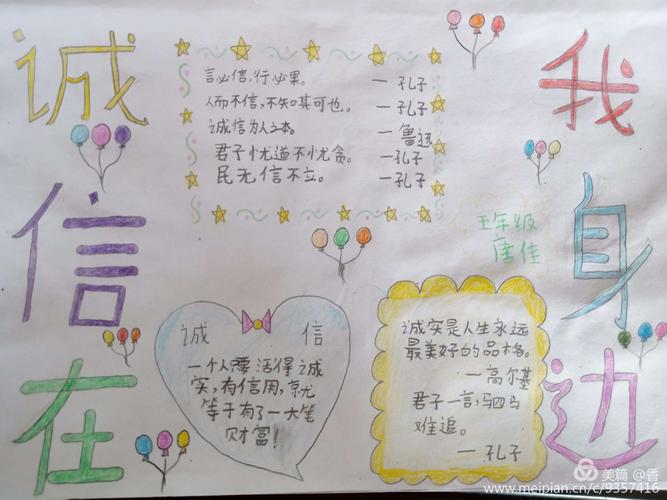 诚信在
我身边
言必信,行必果。 —孔子
人而不信,不知其可也。 —孔子
诚信为人之本。 —鲁迅
君子忧道不忧贪。 —孔子
民无信不立。 —孔子
五年级
唐佳
诚 信
一个人要活得诚
实,有信用,就
等于有了一大笔
财富!
诚实是人生永远
最美好的品格。
—高尔基
君子一言,驷马
难追。
—孔子
美篇 @香
www.meipian.cn/c/9357416